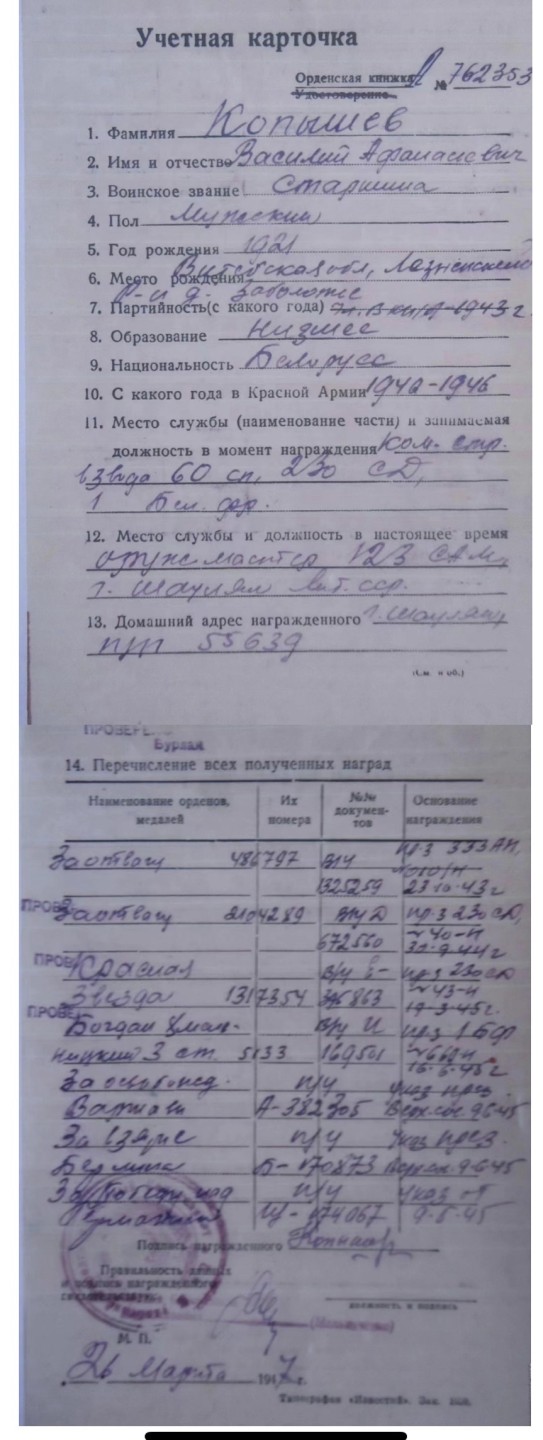 Учетная карточка
Орденская книжка
Удостоверение № 762353
1. Фамилия Копышев
2. Имя и отчество Василий Афанасьевич
3. Воинское звание Старшина
4. Пол Мужской
5. Год рождения 1921
6. Место рождения Витебская обл, Лиозненского
р-н д. Заболотье
7. Партийность(с какого года) 1943 г.
8. Образование низшее
9. Национальность Белорусс
10. С какого года в Красной Армии 1940-1946
11. Место службы (наименование части) и занимаемая
должность в момент награждения Ком. стр.
взвода 60 сп, 230 СД,
1 Бел. фр.
12. Место службы и должность в настоящее время
оруж. мастер 123
г. Шауляй Лит. сср.
13. Домашний адрес награжденного г. Шауляй
п/п 55639
(См. н об.)
ПРОВЕРЕНО
14. Перечисление всех полученных наград
Наименование орденов, медалей
Их номера
№№ документов
Основание награждения
За отвагу 486797 в/у пр-з 333
1325259 23-10-43 г
ПРОВЕ
За отвагу 2104289 в/у Д пр-з 230 СД,
672560 № 40-н
ПРОВЕ
Красная в/у пр-з 230 СД
Звезда 1317354 № 43-н
19-3-45 г.
ПРОВЕ
Богдан Хмель- в/у И пр-з 1 БФ
ницкий 3 ст. 5133 169501
16-6-45 г
За освобожд. п/у указ през.
Варшавы А-382305 Верх. сов. 9-6-45
За взятие п/у указ през.
Берлина Б-170873 Верх. с. 9-6-45
За победу над п/у указ от
Германией 9-5-45
Подпись награжденного
Правильность данных
и подпись награжденного
должность и подпись
М. П.
26 Марта 1947 г.
Типография «Известий». Зак.